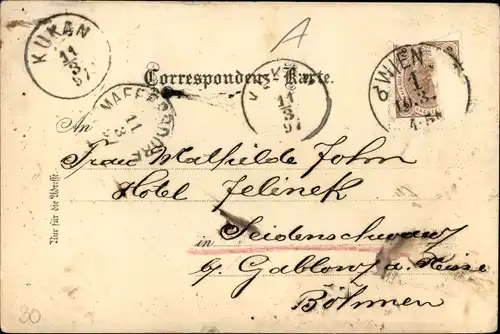 KUKAN
11
3
97
A
Correspondenz-Karte.
MAFFERSDORF
11
3
11
3
97
WIEN
1
10 3
An
Frau Mathilde John
Hotel Jelinek
in Seidenschwanz
b/ Gablonz a. Neisse
Böhmen
Nur für die Adresse.
30